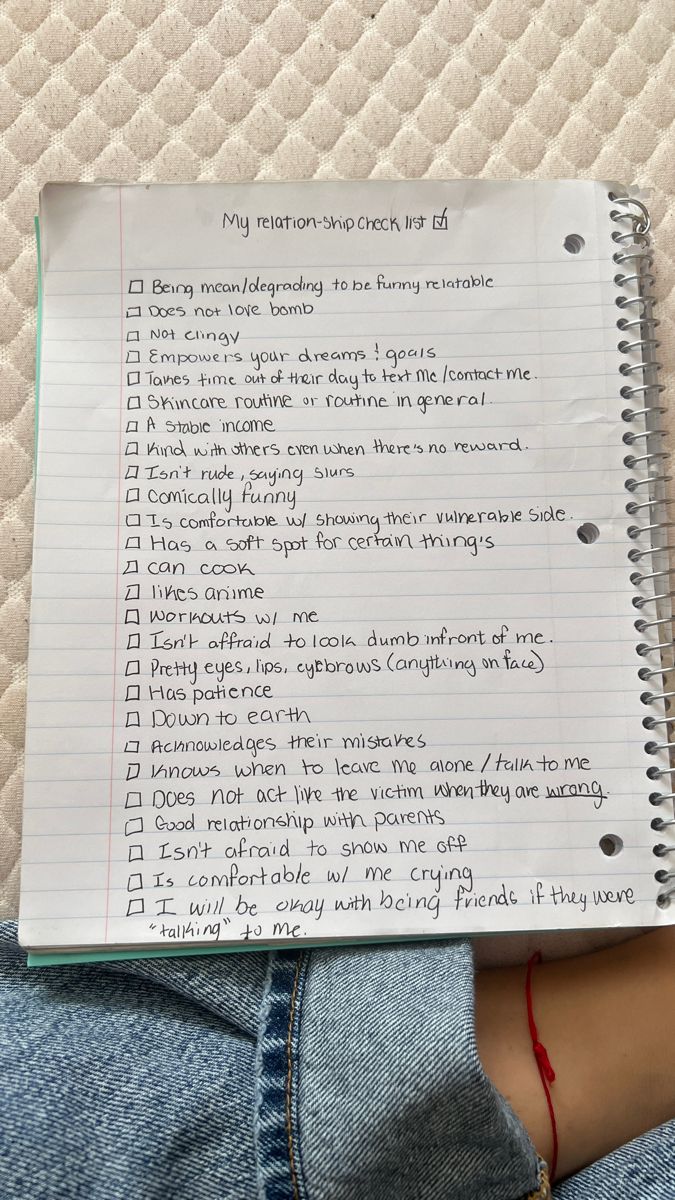 My relation-ship check list ☑
☐ Being mean/degrading to be funny relatable
☐ Does not love bomb
☐ Not clingy
☐ Empowers your dreams & goals
☐ Takes time out of their day to text me/contact me.
☐ Skincare routine or routine in general.
☐ A stable income
☐ Kind with others even when there's no reward.
☐ Isn't rude, saying slurs
☐ Comically funny
☐ Is comfortable w/ showing their vulnerable side.
☐ Has a soft spot for certain thing's
☐ can cook
☐ likes anime
☐ workouts w/ me
☐ Isn't affraid to look dumb infront of me.
☐ Pretty eyes, lips, eyebrows (anything on face)
☐ Has patience
☐ Down to earth
☐ Acknowledges their mistakes
☐ Knows when to leave me alone / talk to me
☐ Does not act like the victim when they are wrong.
☐ Good relationship with parents
☐ Isn't afraid to show me off
☐ Is comfortable w/ me crying
☐ I will be okay with being friends if they were
"talking" to me.